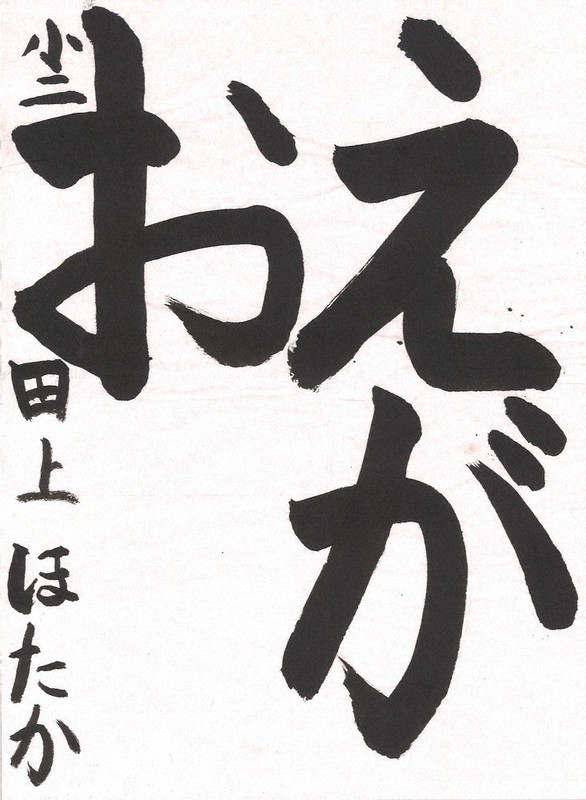 えが
お
小二 田上 ほたか